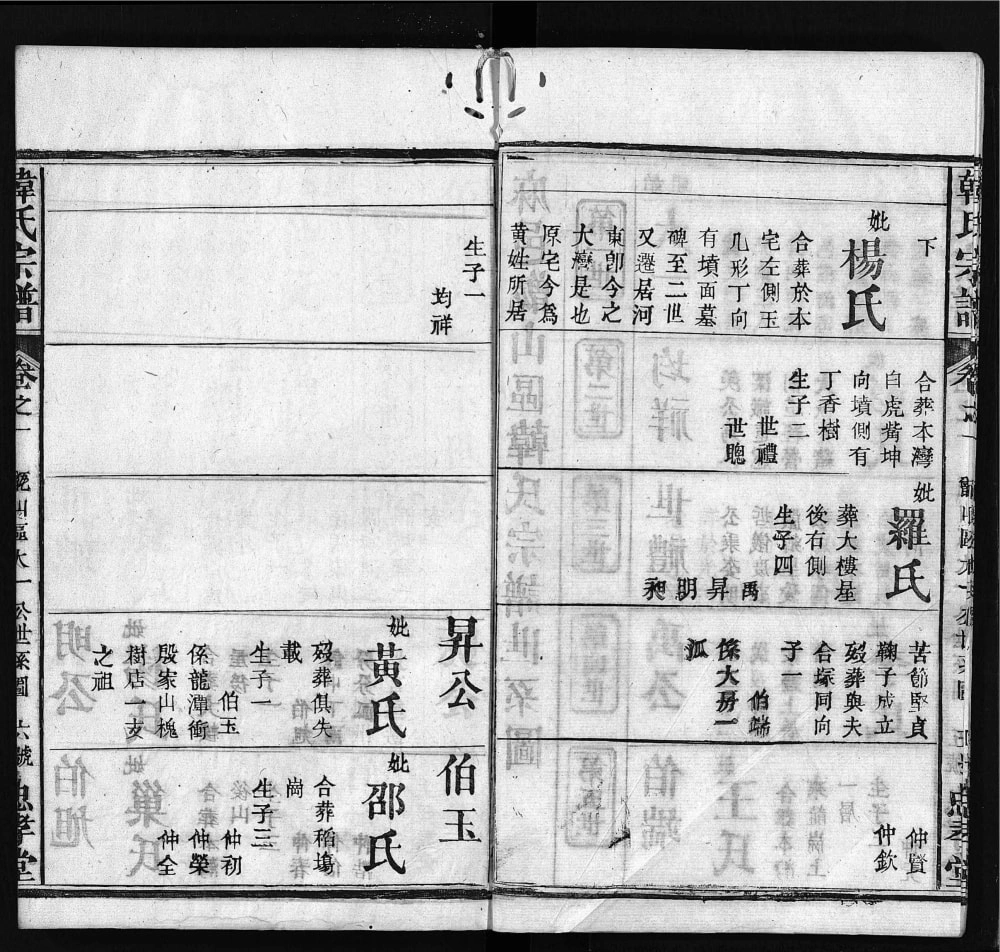 下
妣
楊氏
合葬於本
宅左側玉
几形丁向
有墳面墓
碑至二世
又遷居河
東卽今之
大灣是也
原宅今爲
黄姓所居
合葬本灣
白虎觜坤
向墳側有
丁香樹
生子二
世禮
世聰
妣
羅氏
葬大樓星
後右側
生子四
禹
昇
明
昶
苦節堅貞
鞠子成立
歿葬與夫
合塚同向
子一
伯端
係大房一
派
仲賢
仲欽
忠孝堂
韓氏宗譜
卷之一
生子一
均祥
昇公
妣
黃氏
歿葬俱失
載
生子一
伯玉
係龍潭衝
殷家山槐
樹店一支
之祖
伯玉
妣
邵氏
合葬稻塲
崗
生子三
仲初
仲榮
仲全
韓氏宗譜
卷之一
六號
忠孝堂